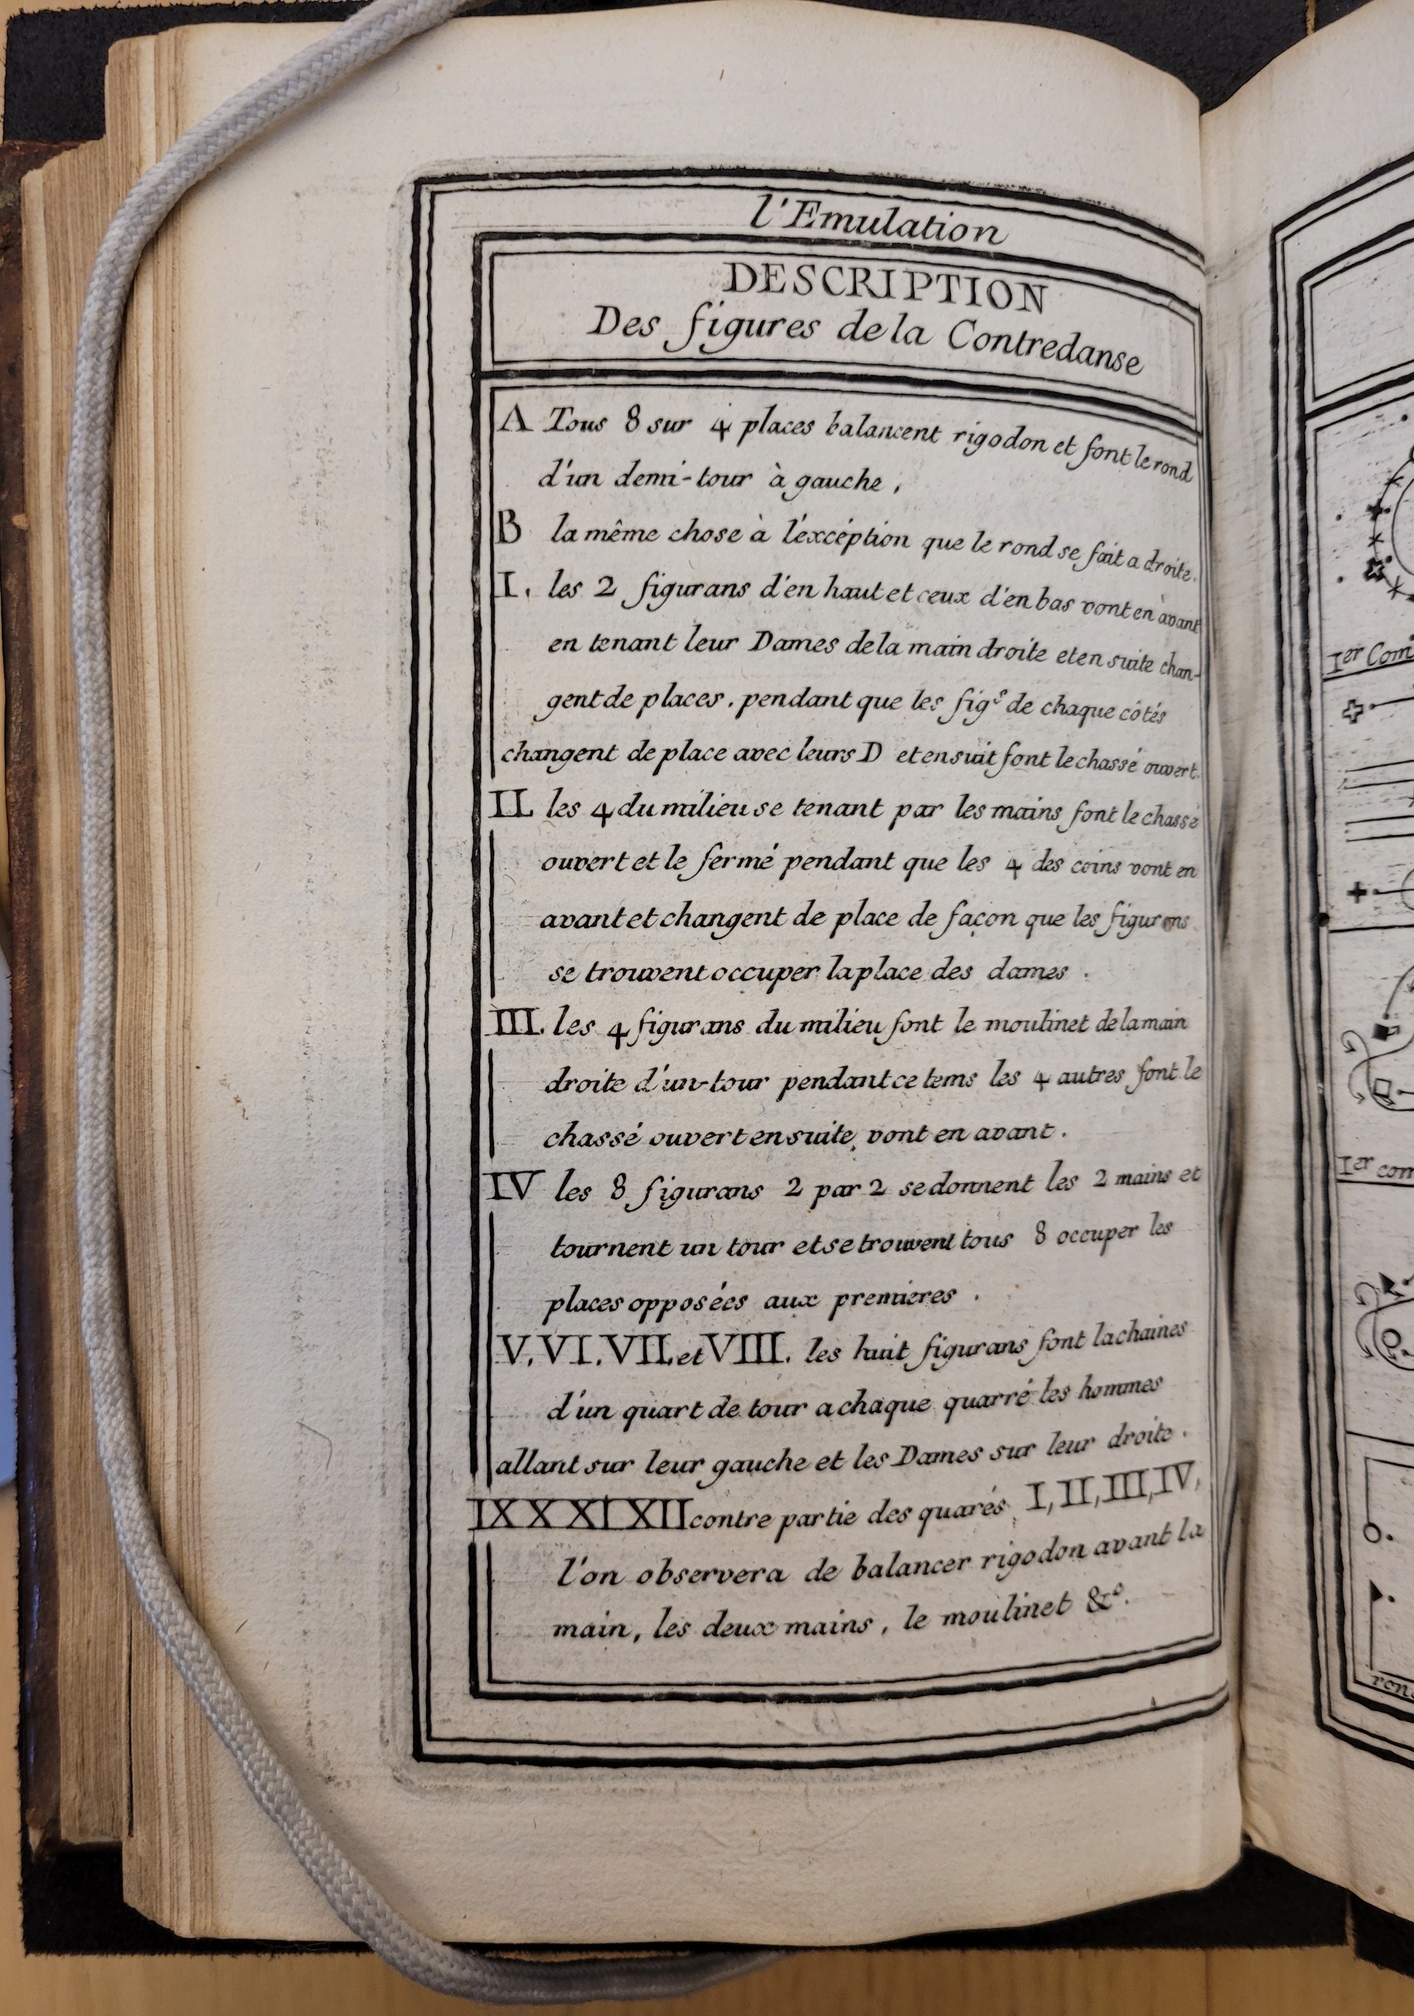 l'Emulation
DESCRIPTION
Des figures de la Contredanse
A Tous 8 sur 4 places balancent rigodon et font le rond
d'un demi-tour à gauche,
B la même chose à l'excéption que le rond se fait a droite.
I. les 2 figurans d'en haut et ceux d'en bas vont en avant
en tenant leur Dames de la main droite et en suite chan-
gent de places, pendant que les figs de chaque côtés
changent de place avec leurs D et ensuit font le chassé ouvert.
II les 4 du milieu se tenant par les mains font le chassé
ouvert et le fermé pendant que les 4 des coins vont en
avant et changent de place de façon que les figurans
se trouvent occuper la place des dames.
III. les 4 figurans du milieu font le moulinet de la main
droite d'un-tour pendant ce tems les 4 autres font le
chassé ouvert ensuite, vont en avant.
IV les 8 figurans 2 par 2 se donnent les 2 mains et
tournent un tour et se trouvent tous 8 occuper les
places opposées aux premieres.
V, VI, VII, et VIII. les huit figurans font la chaines
d'un quart de tour a chaque quarré les hommes
allant sur leur gauche et les Dames sur leur droite.
IX X XI XII contre partie des quarés I, II, III, IV,
l'on observera de balancer rigodon avant la
main, les deux mains, le moulinet &c.
Ier Com
Ier com